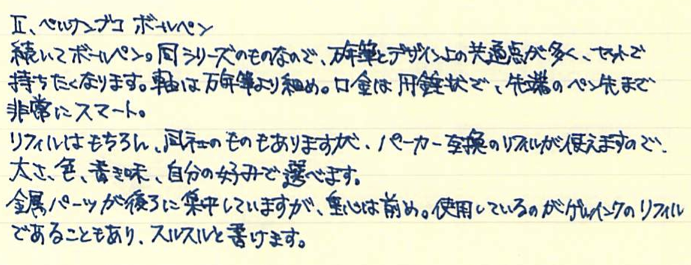 Ⅱ、ペルナンブコ ボールペン
続いてボールペン。同シリーズのものなので、万年筆とデザイン上の共通点が多く、セットで
持ちたくなります。軸は万年筆より細め。口金は円錐状で、先端のペン先まで
非常にスマート。
リフィルはもちろん、同社のものもありますが、パーカー互換のリフィルが使えますので、
太さ、色、書き味、自分の好みで選べます。
金属パーツが後ろに集中していますが、重心は前め。使用しているのがゲルインクのリフィル
であることもあり、スルスルと書けます。